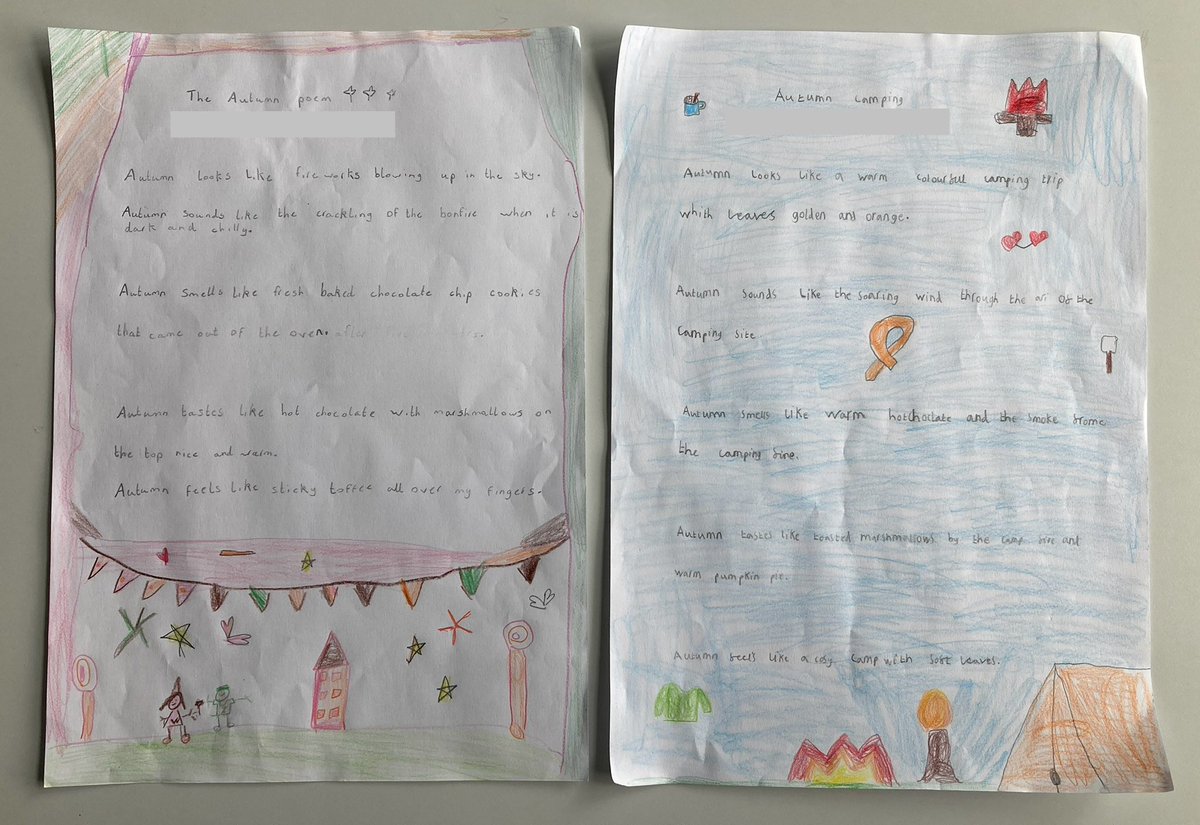 The Autumn poem
Autumn looks like fireworks blowing up in the sky.
Autumn sounds like the crackling of the bonfire when it is
dark and chilly.
Autumn smells like fresh baked chocolate chip cookies
that came out of the oven. after
Autumn tastes like hot chocolate with marshmallows on
the top nice and warm.
Autumn feels like sticky toffee all over my fingers.
Autumn camping
Autumn looks like a warm colourfull camping trip
whith leaves golden and orange.
Autumn sounds like the soaring wind through the air of the
camping site.
Autumn smells like warm hotchoclate and the smoke frome
the camping fire.
Autumn tastes like toasted marshmallows by the camp fire and
warm pumpkin pie.
Autumn feels like a cosy camp with soft leaves.